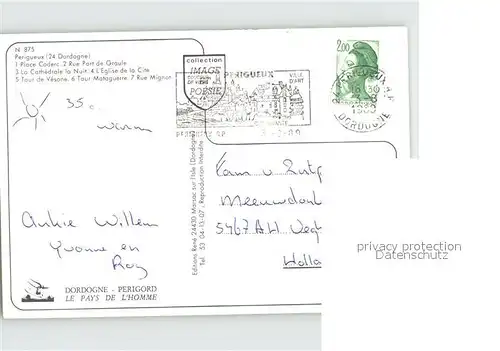 N 875
Perigueux (24 Dordogne)
1 Place Coderc 2 Rue Port de Graule
3 La Cathédrale la Nuit 4 L'Eglise de la Cite
5 Tour de Vésone 6 Tour Mataguerre 7 Rue Mignon
35°
warm
Ankie Willem
Yvonne en
Roy
DORDOGNE - PERIGORD
LE PAYS DE L'HOMME
Editions René 24430 Marsac sur l'Isle (Dordogne)
Tel. 53 04-13-07 - Reproduction Interdite
collection
IMAGE
POESIE
PERIGUEUX
VILLE
D'ART
PERIGUEUX R.P.
2.00
PERIGUEUX R.P.
DORDOGNE
Fam v
5467 AH Veg
Holla
privacy protection
Datenschutz